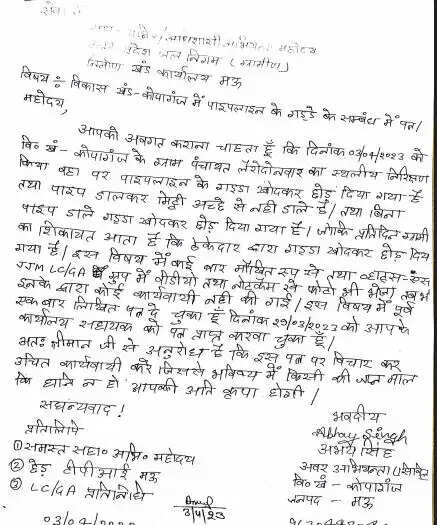 सेवा में
अधिशासी अभियंता महोदय
उत्तर प्रदेश जल निगम (ग्रामीण)
निर्माण खंड कार्यालय मऊ
विषय ÷ विकास खंड - कोपागंज में पाइपलाइन के गड्डे के सम्बंध में पत्र।
महोदय,
आपको अवगत कराना चाहता हूँ कि दिनांक 03/04/2023 को
वि० खं - कोपागंज के ग्राम पंचायत का स्थलीय निरिक्षण
किया वहा पर पाइपलाइन के गड्डा खोदकर छोड़ दिया गया है
तथा पाइप डालकर मिट्टी अच्छे से नही डाले है। तथा बिना
पाइप डाले गड्डा खोदकर छोड़ दिया गया है। जोकि प्रतिदिन ग्रामी
का शिकायत आता है कि ठेकेदार द्वारा गड्डा खोदकर छोड़ दिय
गया है। इस विषय में कई बार मौखित रूप से तथा व्हाट्स-
JJM LC/GA ग्रुप में वीडीयो तथा नोटकैम से फोटो भी भेजा
इनके द्वारा कोई कार्यवायी नही की गई। इस विषय में पूर्व
एक बार लिखित पत्र दे चुका हूँ दिनांक 29/03/2023 को आप के
कार्यालय सहायक को पत्र प्राप्त करवा चुका हूँ।
अतः श्रीमान जी से अनुरोध है कि इस पत्र पर विचार कर
उचित कार्यवायी करे जिससे भविष्य में किसी की जान माल
कि हानि न हो आपकी अति कृपा होगी।
सधन्यवाद!
भवदीय
Abhay Singh
अभय सिंह
अवर अभियन्ता
वि० खं - कोपागंज
जनपद - मऊ
प्रतिलिपि
① समस्त सहा० अभि० महोदय
② हेड टीपीआई मऊ
③ LC/GA प्रतिनिधि
3/4/23
03/04/202